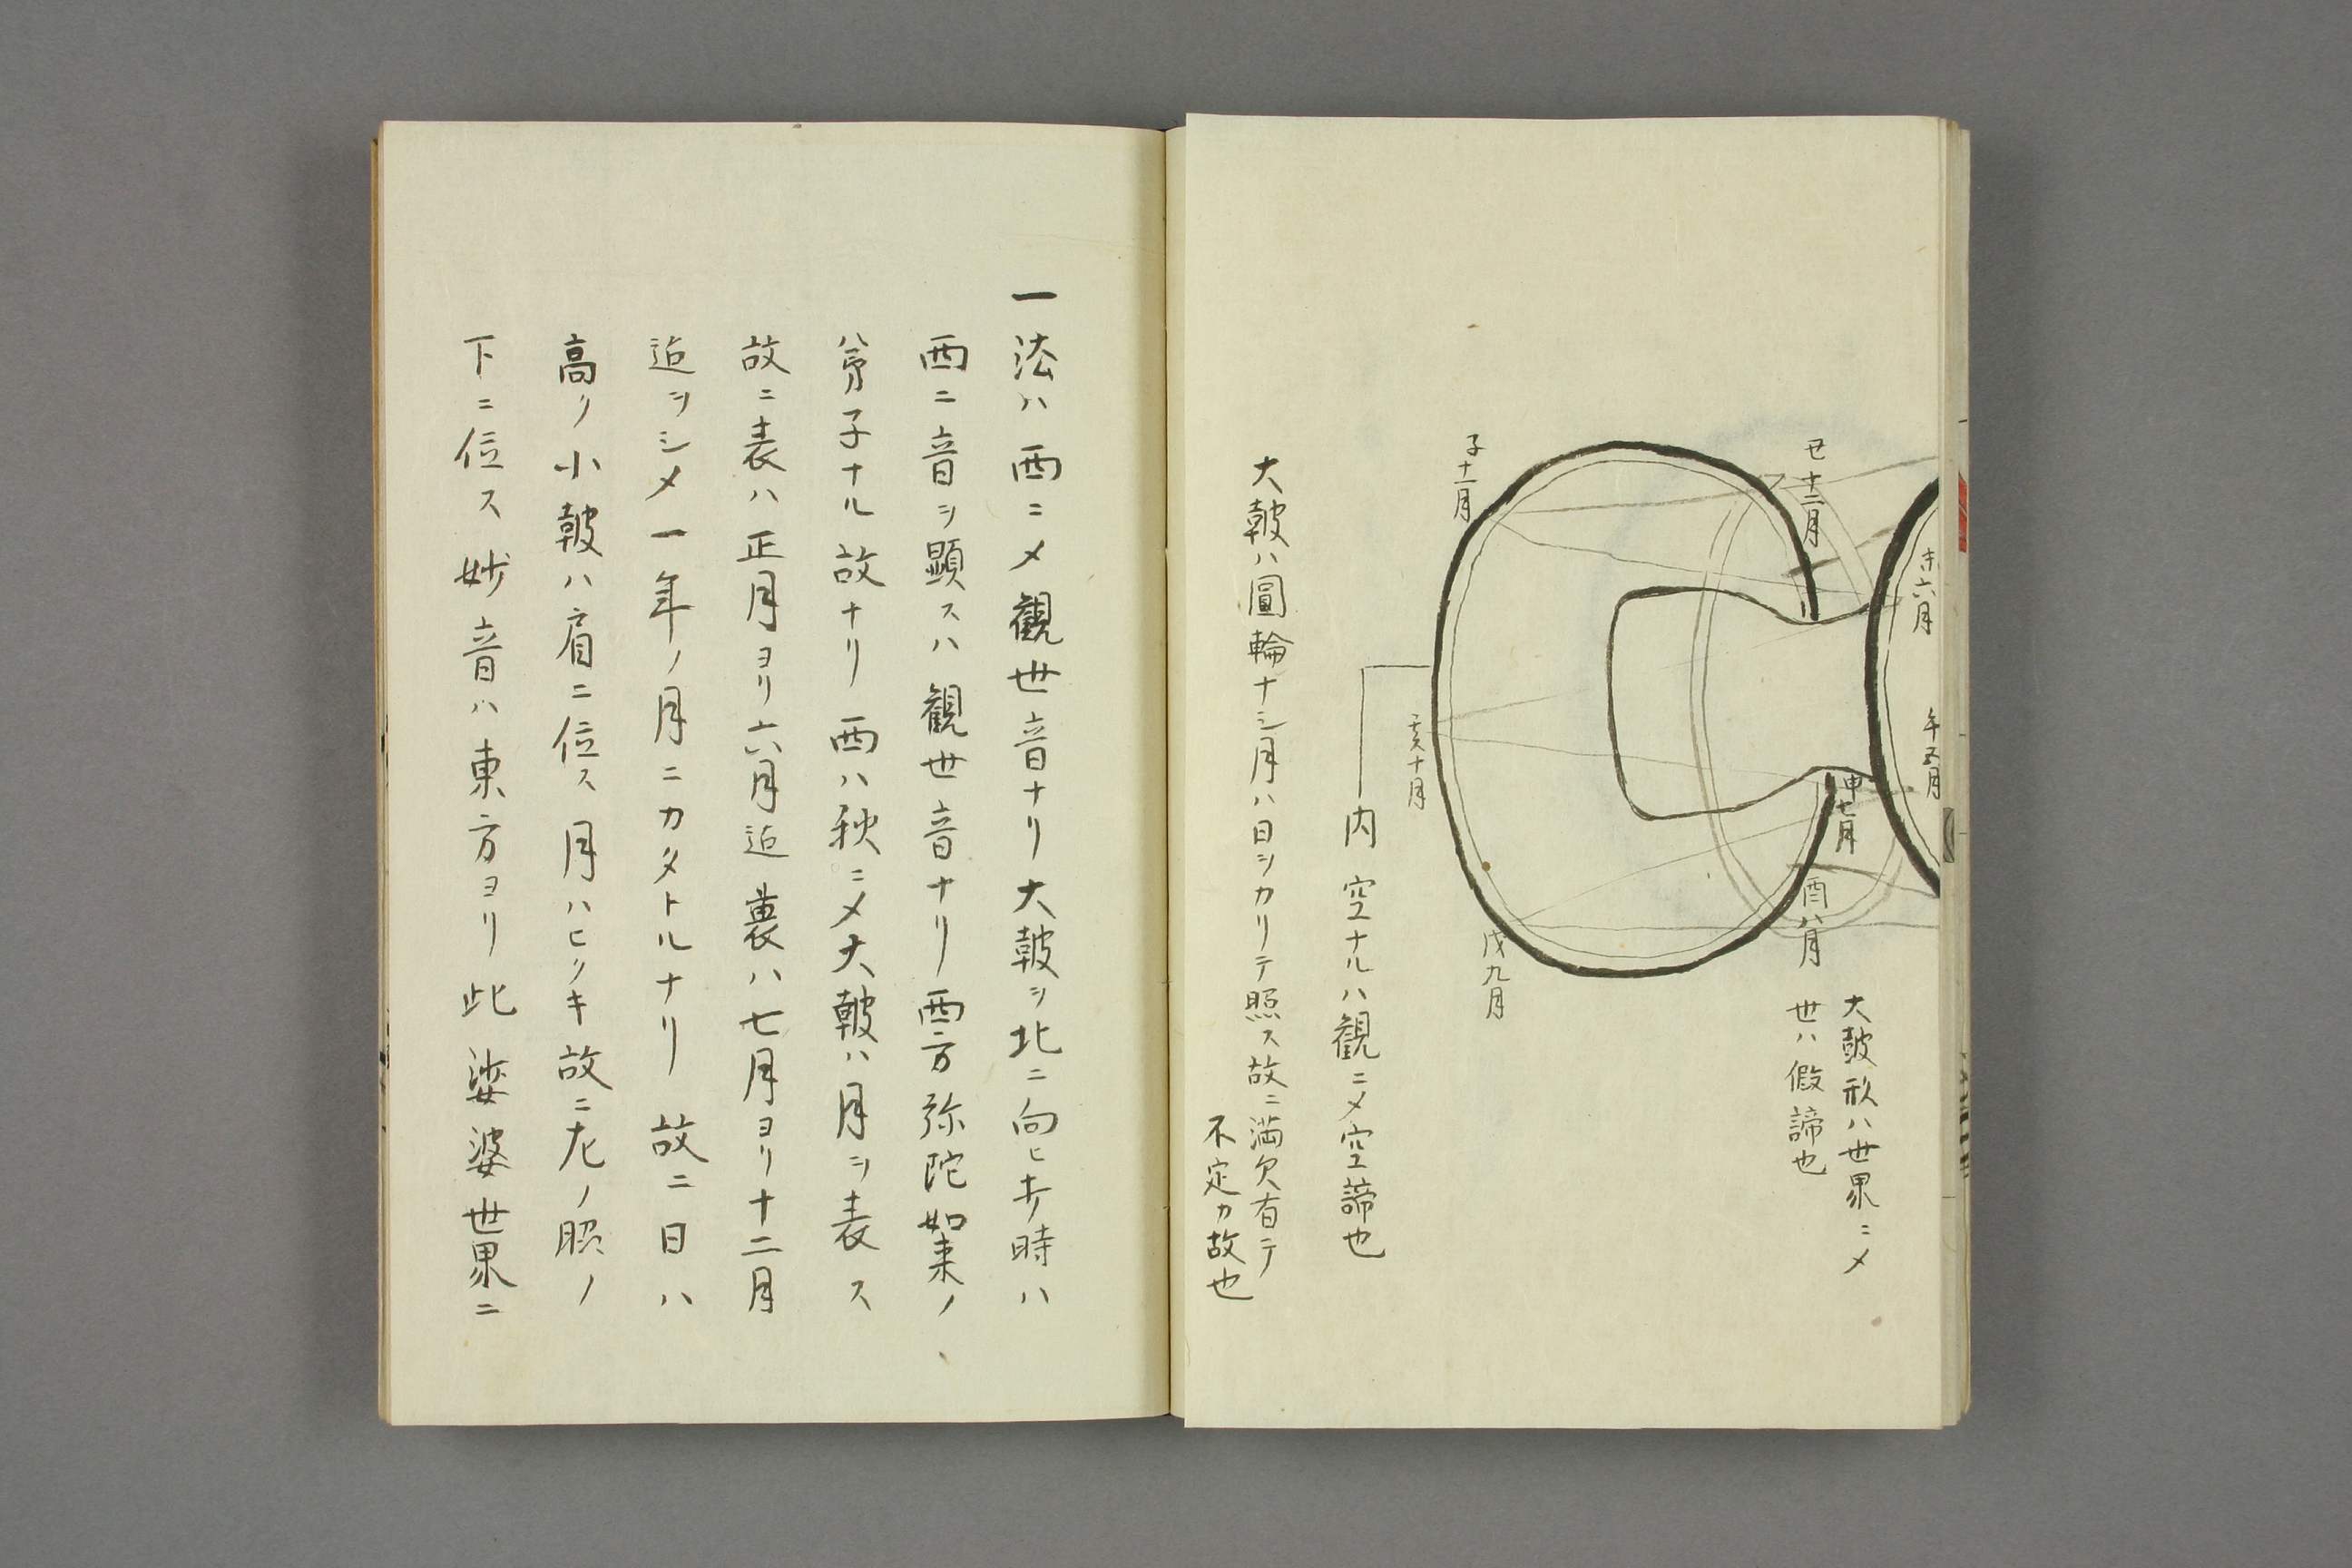 未六月
午五月
丑十二月
申七月
酉八月
大皷形ハ世界ニメ
世ハ假諦也
子十一月
戌九月
亥十月
内 空ナルハ観ニメ空諦也
大皷ハ圓輪ナシ月ハ日ヲカリテ照ス故ニ満欠有テ
不定カ故也
一法ハ西ニメ観世音ナリ大皷ヲ北ニ向ヒキ時ハ
西ニ音ヲ顕スハ観世音ナリ西方弥陀如来ノ
八弟子ナル故ナリ西ハ秋ニメ大皷ハ月ヲ表ス
故ニ表ハ正月ヨリ六月迠裏ハ七月ヨリ十二月
迠ヲシメ一年ノ月ニカタトルナリ故ニ日ハ
高リ小皷ハ肩ニ位ス月ハヒリキ故ニ尤ノ照ノ
下ニ位ス妙音ハ東方ヨリ此娑婆世界ニ